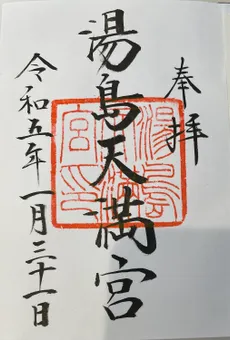 奉拝
湯島天満宮
令和五年一月三十一日